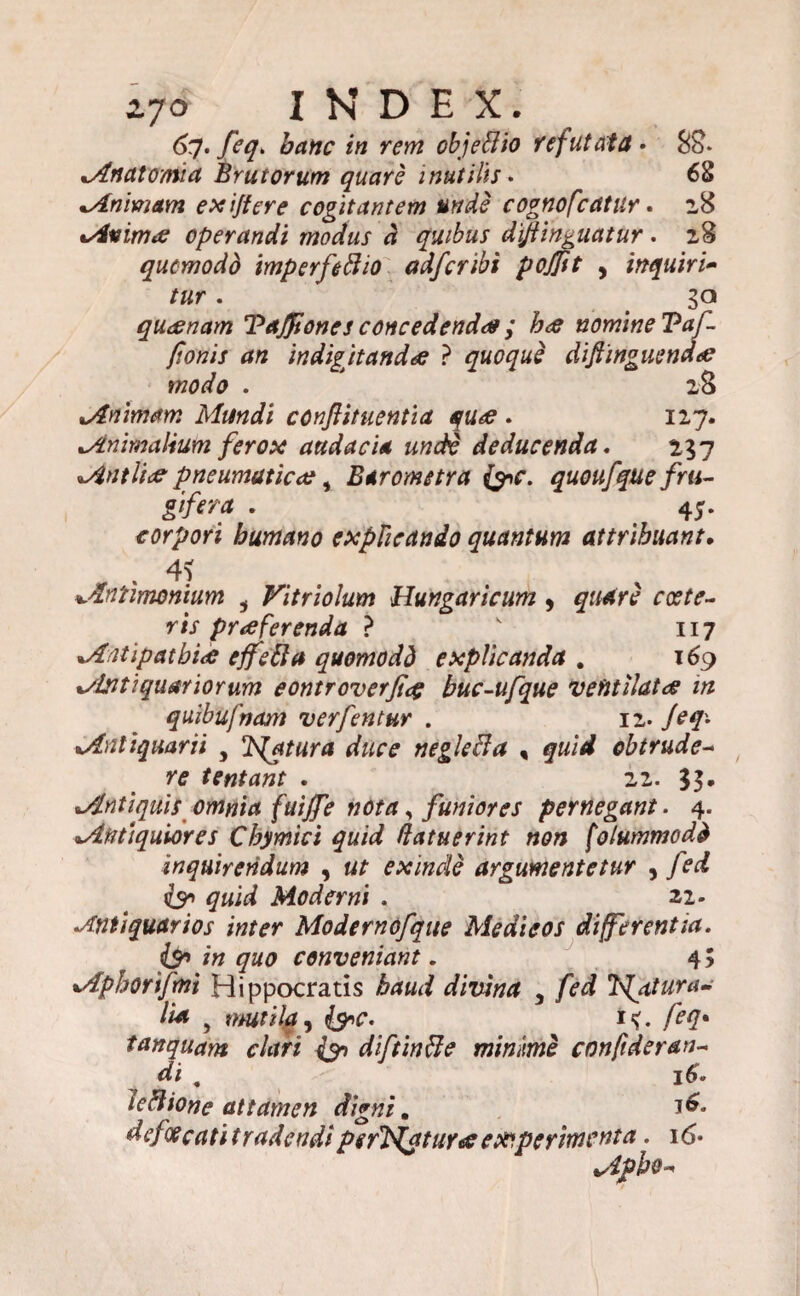 270 INDEX.
67. ſeq. hanc in rem objectio refutata. 88.
Anatomia Brutorum quare inutilis. 68
Animam exiſtere cogitantem unde cognoſcatur. 28
Animæ operandi modus à quibus diſtinguatur. 28
quomodò imperfectio adſcribi poſſit, inquiri-
tur. 30
quænam Paſſiones concedendæ; hæ nomine Paſ-
ſionis an indigitandæ? quoquè diſtinguendæ
modo. 28
Animam Mundi conſtituentia quæ. 127.
Animalium ferox audacia undè deducenda. 237
Antliæ pneumaticæ, Barometra &c. quouſque fru-
gifera. 45.
corpori humano explicando quantum attribuant.
45
Antimonium, Vitriolum Hungaricum, quarè cœte-
ris præferenda? 117
Antipathiæ effecta quomodò explicanda. 169
Antiquariorum controverſiæ huc-uſque ventilatæ in
quibuſnam verſentur. 12. ſeq.
Antiquarii, Natura duce neglecta, quid obtrude-
re tentant. 22. 33.
Antiquis omnia fuiſſe nota, funiores pernegant. 4.
Antiquiores Chymici quid ſtatuerint non ſolummodò
inquirendum, ut exindè argumentetur, ſed
& quid Moderni. 22.
Antiquarios inter Modernoſque Medicos differentia.
& in quo conveniant. 45
Aphoriſmi Hippocratis haud divina, ſed Natura-
lia, mutila, &c. 15. ſeq.
tanquam clari & diſtinctè minimè conſideran-
di. 16.
lectione attamen digni. 16.
defœcati tradendi per Naturæ experimenta. 16.
Apho-